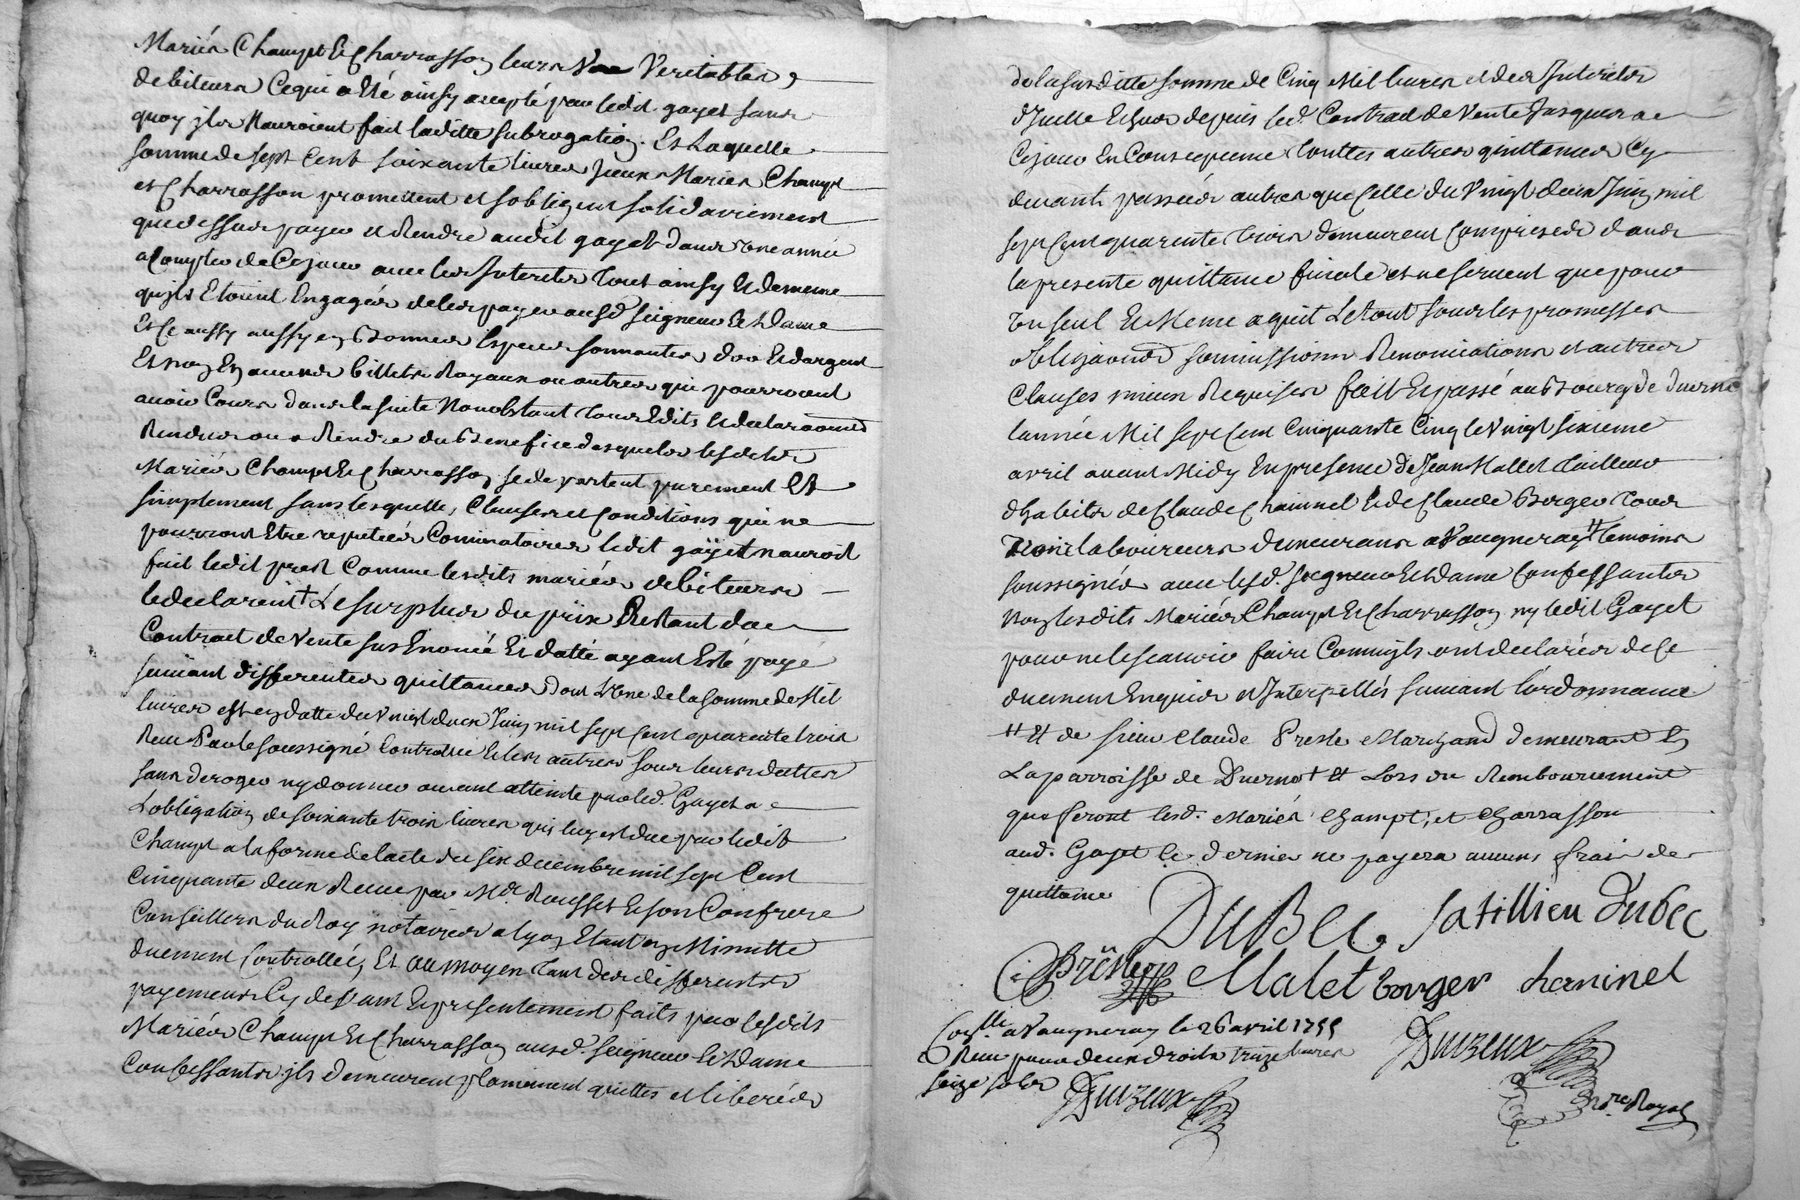 Mariés Champt Et Charrasson leurs Vrais Veritables
debiteurs Cequi a Eté ainsy accepté par ledit gayet sans
quoy jls Nauroient fait laditte subrogation. Et Laquelle
somme de sept Cent soixante livres Jceux Mariés Champt
et Charrasson promettent et sobligent solidairement
quedessus payer et Rendre audit gayet dans une année
a Compter de Cejour avec les Interets Tout ainsy Et dememe
quils Etoient Engagés deles payer ausd. seigneur Et Dame
Et Ce aussy en Bonnes Especes sonnantes dor Et dargent
Et non En aucuns billets Royaux ou autres qui pourroient
avoir Cours dans la suite Nonobstant Tous Edits Et declaraons
Rendues ou a Rendre du Benefice desquels lesdits
Mariés Champt Et Charrasson se departent purement Et
simplement sans lesquelles Clauses et Conditions qui ne
pourront Etre reputées Cominatoires ledit gaÿet nauroit
fait ledit prest Comme lesdits mariés debiteurs
ledeclarent + Le surplus du prix Restant du
Contract de Vente sus Enoncé Et datté ayant Eté payé
suivant differentes quittances dont L'une de la somme de Mil
livres est en datte du Vingt deux Juin mil sept cent quarente trois
Receu Par le soussigné Controllée Et les autres sous leurs dattes
sans deroger ny donner aucune atteinte par led. Gayet a
L'obligation de soixante trois livres qui luy est due par ledit
Champt a la forme de lacte du six decembre mil sept Cent
Cinquante deux Receue par Me. Rousset Et son Confrere
Conseillers du Roy notaires a lyon Etant en Minutte
duement Controllée, Et au moyen Tant des differents
payements Cy devant Et presentement faits par lesdits
Mariés Champt Et Charrasson ausd. seigneur Et Dame
Confessants jls demeurent plainement quittes et liberés
de la susditte somme de Cinq Mil livres et des Interets
d'Icelle Echus depuis led. Contract de Vente Jusques a
Cejour En Consequence Touttes autres quittances Cy
devant passées autres que Celle du Vingt deux Juin mil
sept Cent quarente trois demeurent Comprises dans
la presente quittance finale et ne servent que pour
Un seul Et Meme aquit Le tout sous les promesses
obligaons soumissions Renonciations et autres
Clauses mieux Requises fait Et passé au Bourg de duerne
lannée Mil sept Cent Cinquante Cinq le Vingt sixieme
avril avant Midy En presence de Jean Mallet Tailleur
dhabits de Claude Chaminel Et de Claude Berger Tous
deux laboureurs demeurans a Vaugneray # temoins
soussignés avec lesd. seigneur Et Dame Confessants
Non lesdits Mariés Champt Et Charrasson ny ledit Gayet
pour ne le scavoir faire Comm'ils ont declarés de Ce
duement Enquis et Interpellés suivant lordonnance
# Et de sieur Claude Presle Marchand demeurant En
La parroisse de Duerne + Et Lors du Remboursement
que feront lesd. Mariés Champt et Charrasson
aud. Gayet Ce dernier ne payera aucuns frais de
quittance
DuBec Satillieu Dubec
C Presle Malet berger chaminel
Conllé a Vaugneray le 26 avril 1755
Receu pour deux droits treize livres
seize sols
Duizeux
Duizeux
Nore Royal